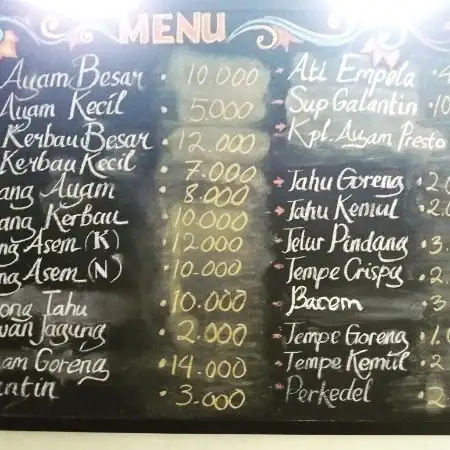 MENU
Ayam Besar . 10.000
Ayam Kecil . 5.000
Kerbau Besar . 12.000
Kerbau Kecil . 7.000
ang Ayam . 8.000
ang Kerbau . 10.000
ng Asem (K) . 12000
ng Asem (N) . 10.000
ong Tahu . 10.000
wan Jagung . 2.000
am Goreng . 14.000
antin . 3.000
Ati Empela . 4
Sup Galantin . 10
Kpl. Ayam Presto
Tahu Goreng . 2.0
Tahu Kemul . 2.0
Telur Pindang . 3.
Tempe Crispy . 2.
Bacem . 3
Tempe Goreng . 1.0
Tempe Kemul . 2
Perkedel . 2.